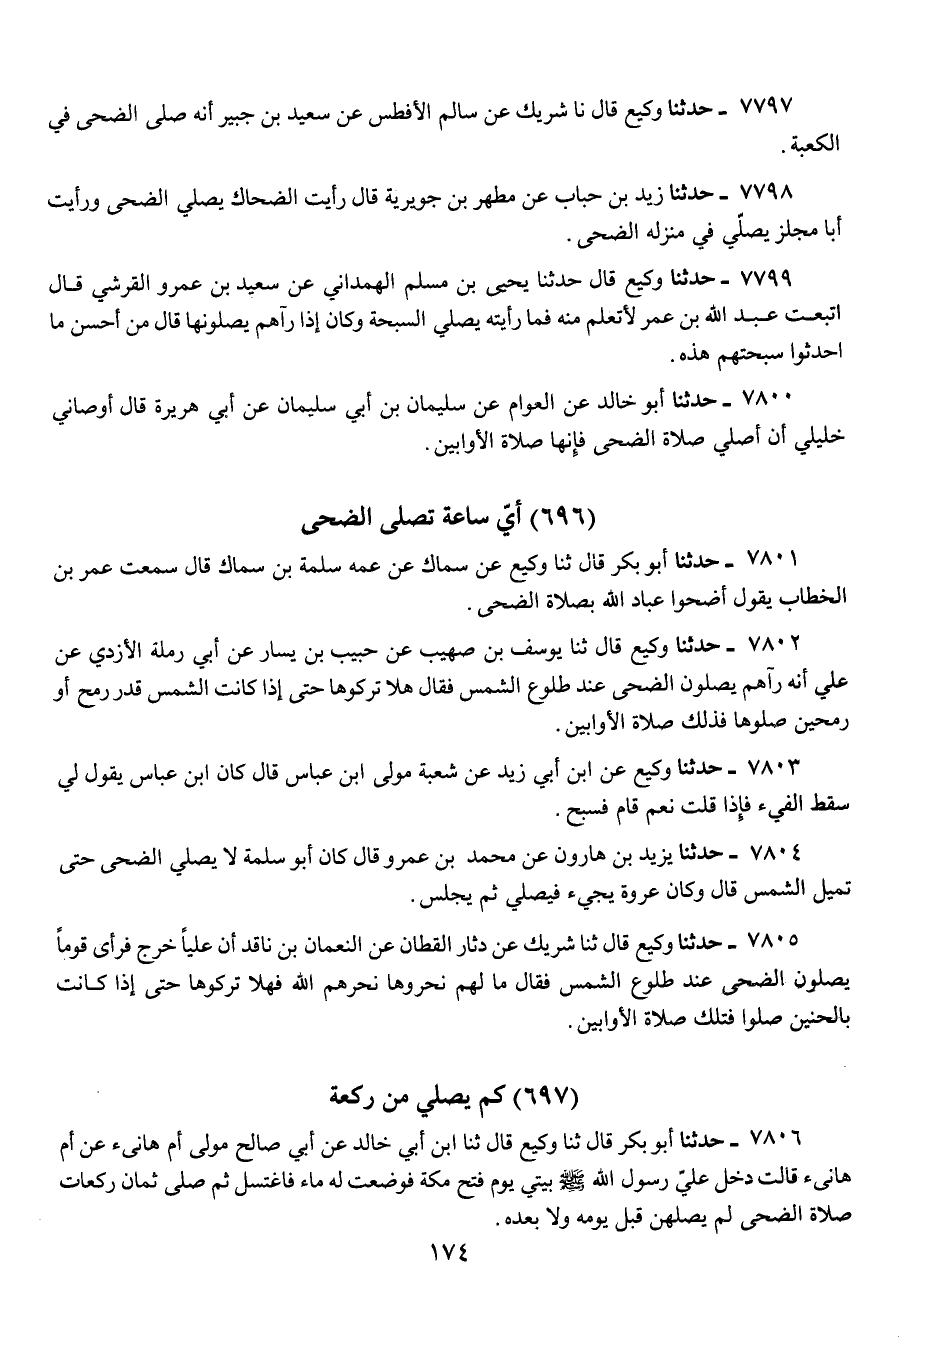 ٧٧٩٧ ـ حدثنا وكيع قال نا شريك عن سالم الأفطس عن سعيد بن جبير أنه صلى الضحى في
الكعبة .
٧٧٩٨ ـ حدثنا زيد بن حباب عن مطهر بن جويرية قال رأيت الضحاك يصلي الضحى ورأيت
أبا مجلز يصلّي في منزله الضحى .
٧٧٩٩ ـ حدثنا وكيع قال حدثنا يحيى بن مسلم الهمداني عن سعيد بن عمرو القرشي قال
اتبعت عبد الله بن عمر لأتعلم منه فما رأيته يصلي السبحة وكان إذا رآهم يصلونها قال من أحسن ما
احدثوا سبحتهم هذه .
٧٨٠٠ ـ حدثنا أبو خالد عن العوام عن سليمان بن أبي سليمان عن أبي هريرة قال أوصاني
خليلي أن أصلي صلاة الضحى فإنها صلاة الأوابين .
(٦٩٦) أيّ ساعة تصلى الضحى
٧٨٠١ ـ حدثنا أبو بكر قال ثنا وكيع عن سماك عن عمه سلمة بن سماك قال سمعت عمر بن
الخطاب يقول أضحوا عباد الله بصلاة الضحى .
٧٨٠٢ ـ حدثنا وكيع قال ثنا يوسف بن صهيب عن حبيب بن يسار عن أبي رملة الأزدي عن
علي أنه رآهم يصلون الضحى عند طلوع الشمس فقال هلا تركوها حتى إذا كانت الشمس قدر رمح أو
رمحين صلوها فذلك صلاة الأوابين .
٧٨٠٣ ـ حدثنا وكيع عن ابن أبي زيد عن شعبة مولى ابن عباس قال كان ابن عباس يقول لي
سقط الفيء فإذا قلت نعم قام فسبح .
٧٨٠٤ ـ حدثنا يزيد بن هارون عن محمد بن عمرو قال كان أبو سلمة لا يصلي الضحى حتى
تميل الشمس قال وكان عروة يجيء فيصلي ثم يجلس .
٧٨٠٥ ـ حدثنا وكيع قال ثنا شريك عن دثار القطان عن النعمان بن ناقد أن علياً خرج فرأى قوماً
يصلون الضحى عند طلوع الشمس فقال ما لهم نحروها نحرهم الله فهلا تركوها حتى إذا كانت
بالحنين صلوا فتلك صلاة الأوابين .
(٦٩٧) كم يصلي من ركعة
٧٨٠٦ ـ حدثنا أبو بكر قال ثنا وكيع قال ثنا ابن أبي خالد عن أبي صالح مولى أم هانىء عن أم
هانىء قالت دخل عليّ رسول الله ﷺ بيتي يوم فتح مكة فوضعت له ماء فاغتسل ثم صلى ثمان ركعات
صلاة الضحى لم يصلهن قبل يومه ولا بعده .
١٧٤